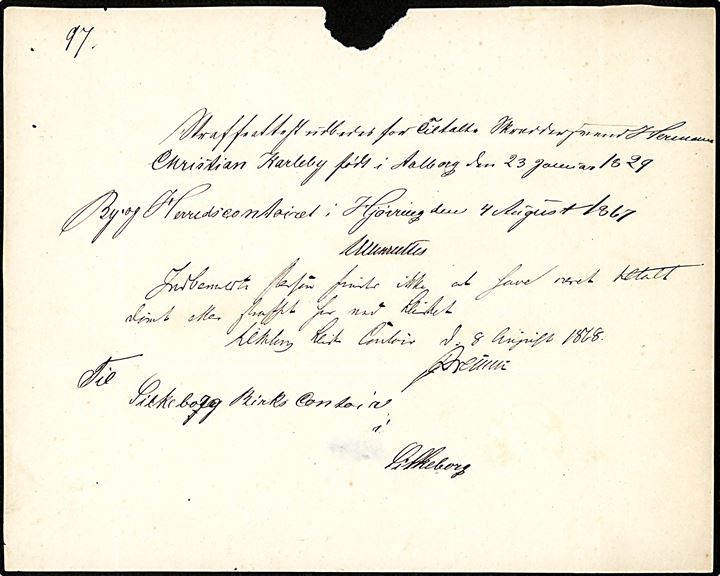 97.
Straffeattest udbedes for Tiltalte Skræddersvend Hermann
Christian Karleby født i Aalborg den 23 Januar 1829
By- og Herredscontoiret i Hjørring den 4 August 1867
Indbemeldte Person findes ikke at have været tiltalt
dømt eller straffet her ved Retten
Contoir d. 8 August 1868.
Til
Silkeborg Birks Contoir
i
Silkeborg